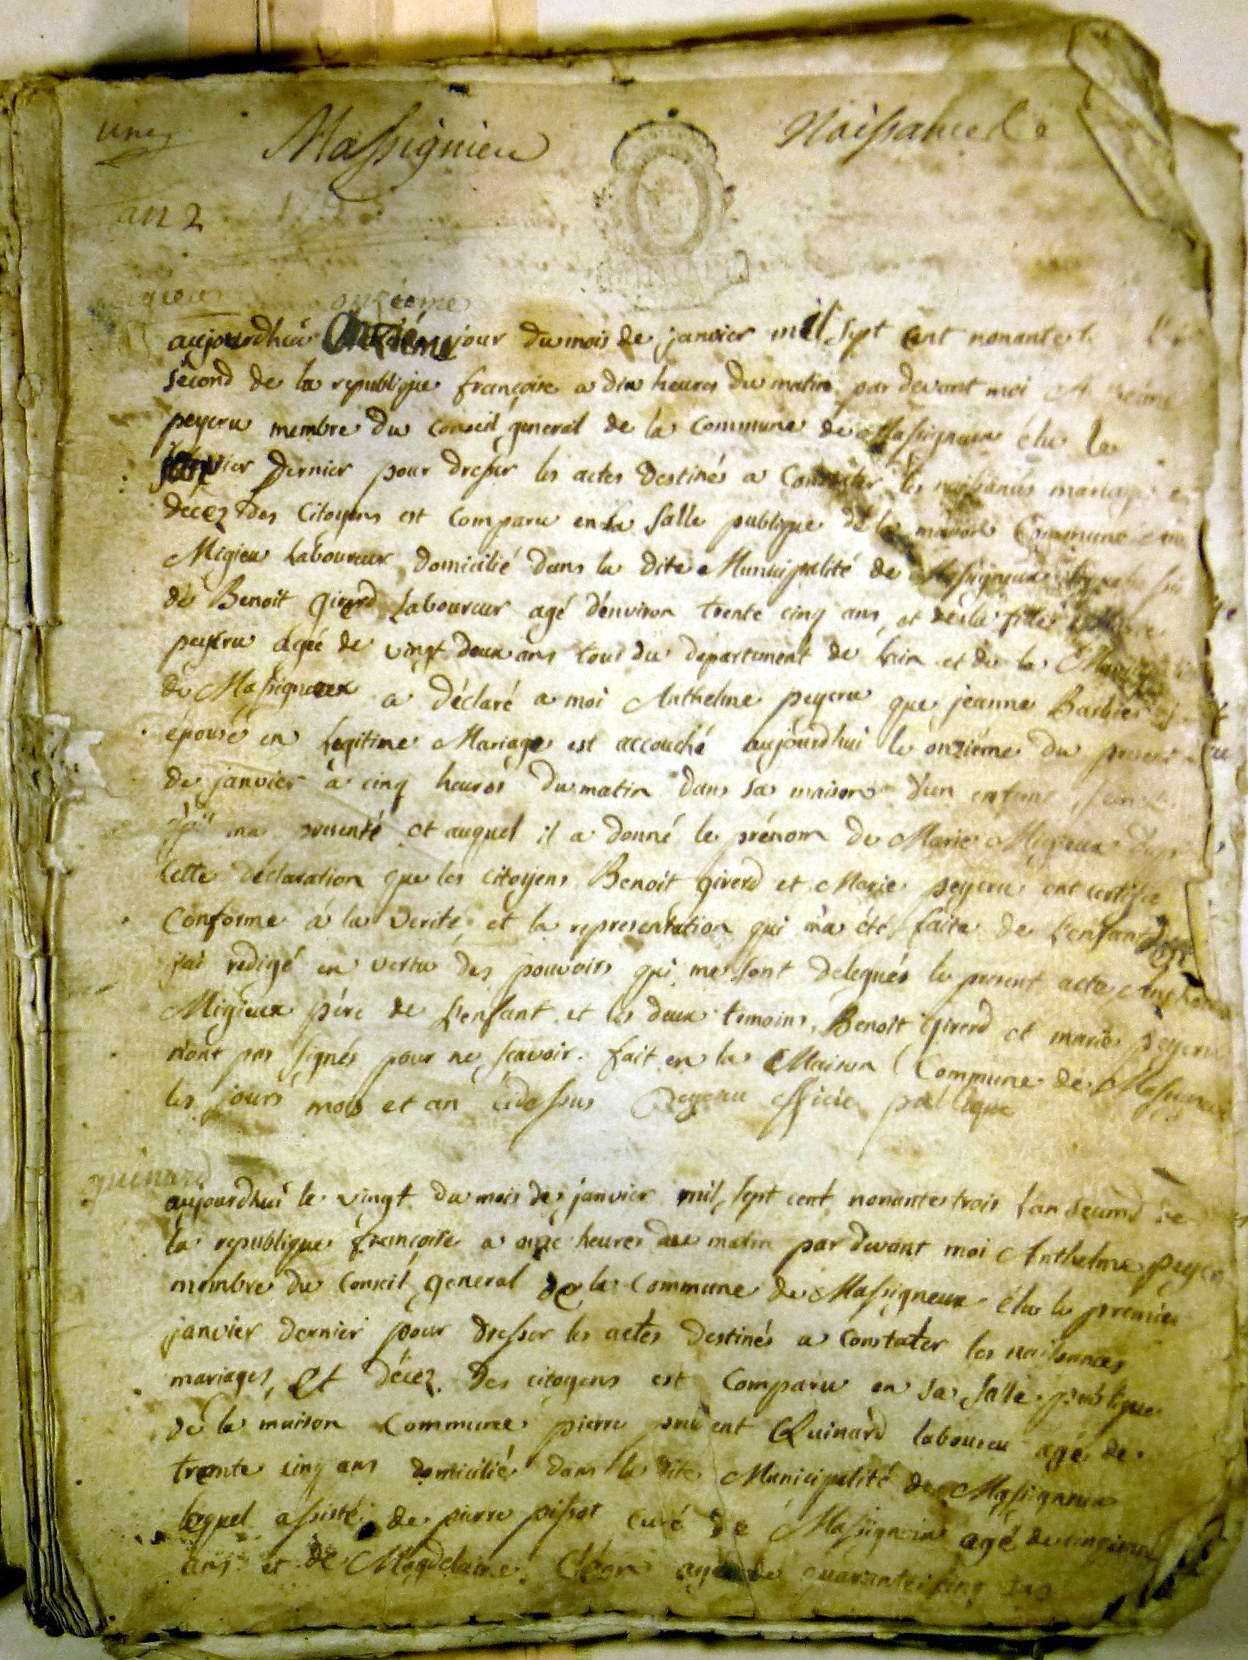 une
Massignieu
Naissance
an 2
onzieme
aujourdhui onzième jour du mois de janvier mil sept cent nonante
second de la republique françoise a dix heures du matin par devant moi
peyeru membre du Conseil general de la Commune de Massigneux élu le
janvier dernier pour dresser les actes destinés a Constater les naissances mariages
decez des Citoyens est Comparu en la salle publique de la maison Commune
Migieu Laboureur domicilié dans la dite Municipalité de Massigneux
de Benoit girerd Laboureur agé denviron trente cinq ans et de
peyeru agée de vingt deux ans tous du département de Lain et de la
de Massigneux a déclaré a moi Anthelme peyeru que jeanne Barbier
epouse en Legitime Mariage est accouché aujourdhui le onzieme du present
de janvier à cinq heures du matin dans sa maison d'un enfant
qu'il ma presenté et auquel il a donné le prénom de Marie Migieux
Cette déclaration que les citoyens Benoit girerd et Marie peyeru ont certifié
Conforme à la verité et la representation qui m'a été faite de L'enfant
jai redigé en vertu des pouvoirs qui me sont delegués le present acte
Migieux père de L'enfant et les deux temoins, Benoit girerd et marie peyeru
n'ont pas signés pour ne sçavoir. fait en la Maison Commune de
les jours mois et an cidessus Peyeru officié publique
quinard
aujourdhui le vingt du mois de janvier mil sept cent nonante trois Lan second de
la republique françoise a onze heures du matin par devant moi Anthelme
membre du Conseil general de la Commune de Massigneux élu le premier
janvier dernier pour dresser les actes destinés a Constater les naissances
mariages et décez des citoyens est Comparu en la salle publique
de la maison Commune pierre Quinard laboureu agé de
trente cinq ans domicilié dans la dite Municipalité de Massigneux
lequel assisté de pierre pissot curé de Massignieu agé de
ans et de Magdelaine agée de quarante cinq ans